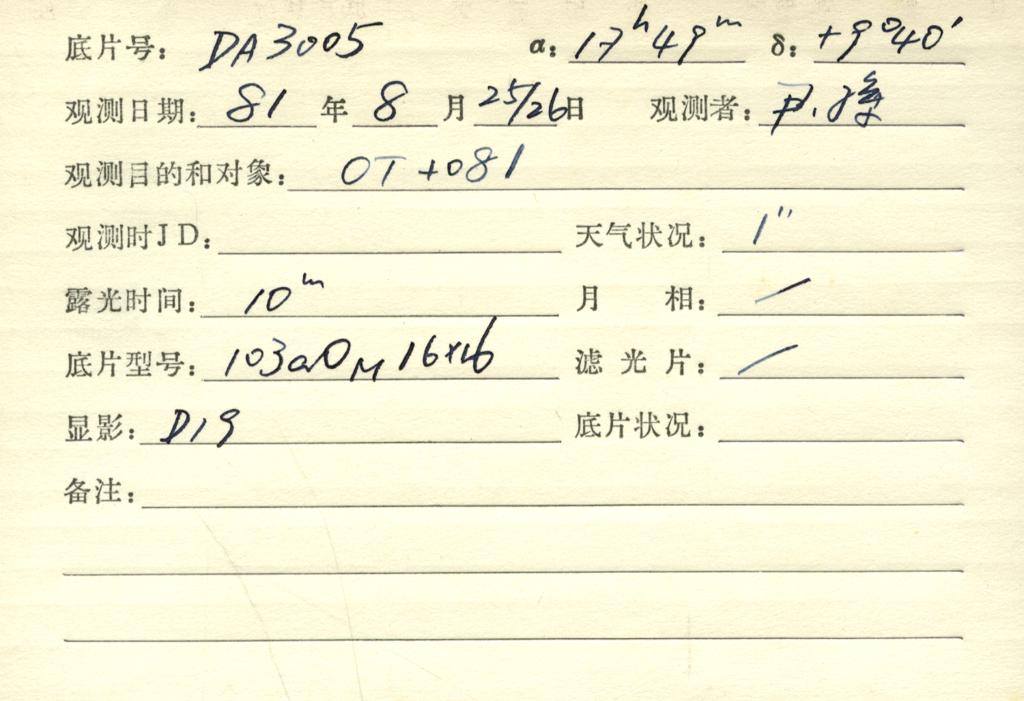 底片号: DA3005 α: 17ʰ49ᵐ δ: +9°40′
观测日期: 81 年 8 月 25/26日 观测者: 尹.孫
观测目的和对象: OT+081
观测时JD: 天气状况: 1″
露光时间: 10ᵐ 月 相: /
底片型号: 103aO M 16×16 滤光片: /
显影: D19 底片状况:
备注: